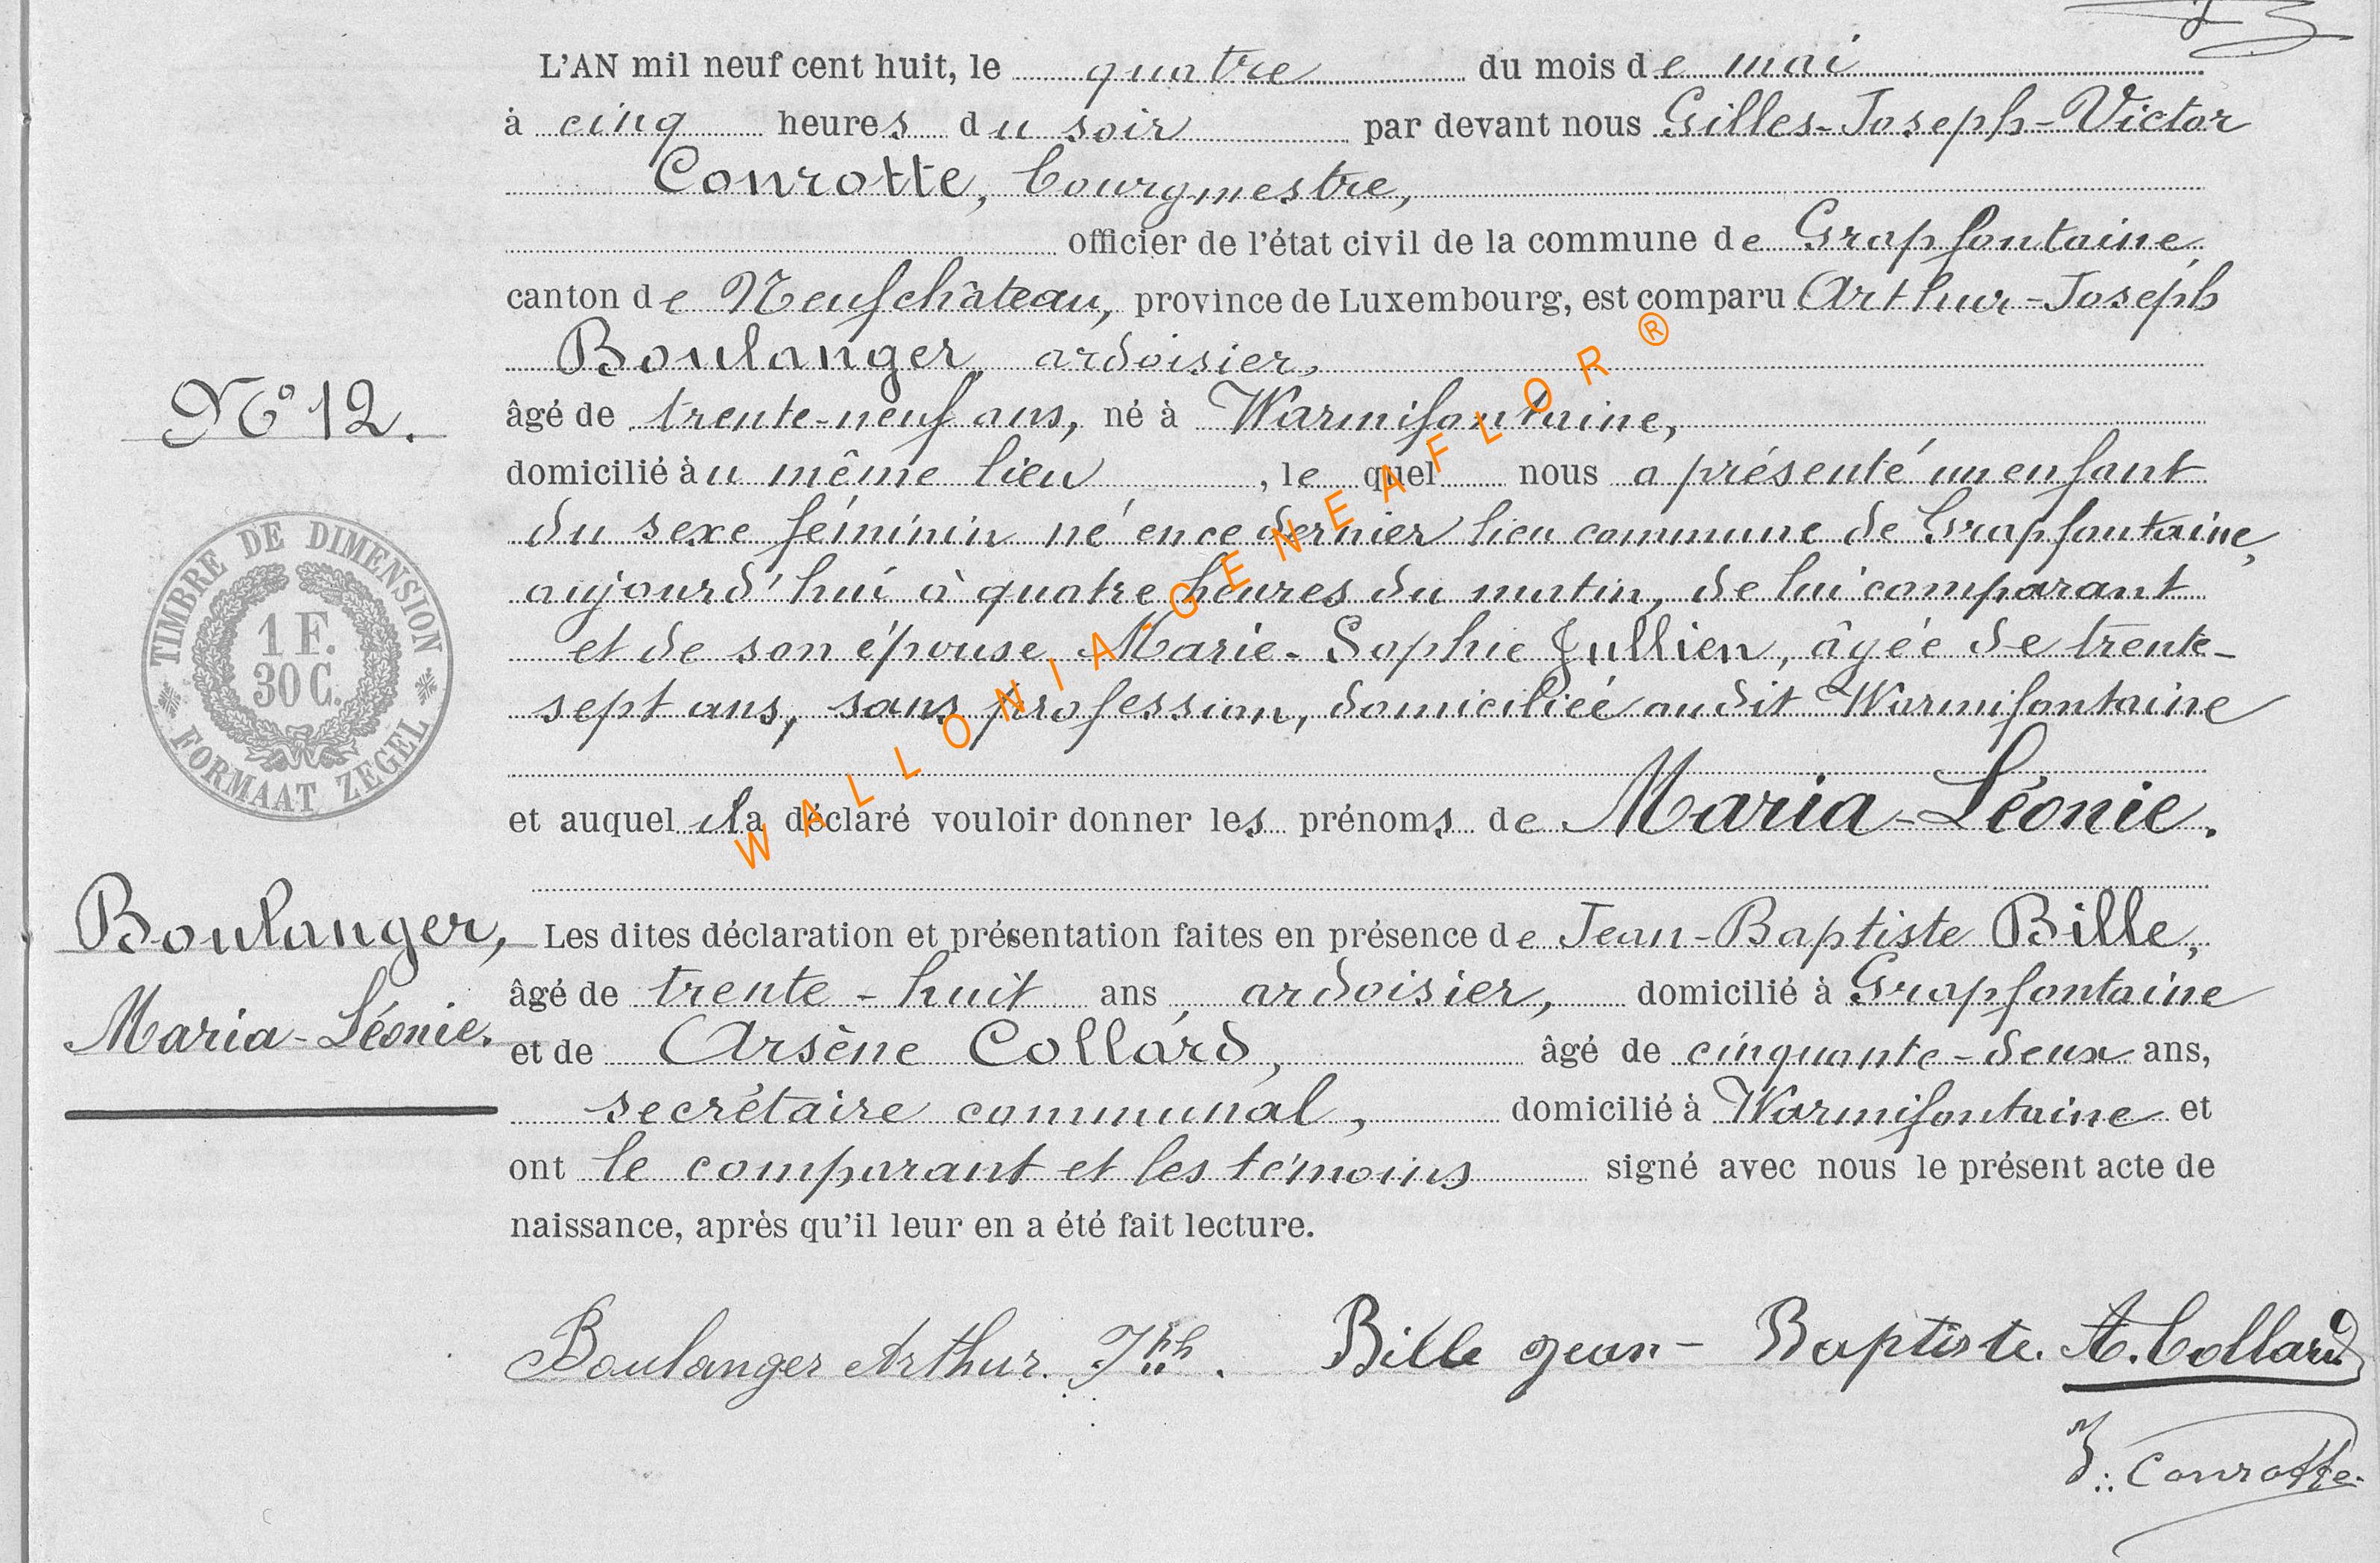 L'AN mil neuf cent huit, le quatre du mois de mai
à cinq heures du soir par devant nous Gilles-Joseph-Victor
Conrotte, bourgmestre,
officier de l'état civil de la commune de Grapfontaine,
canton de Neufchâteau, province de Luxembourg, est comparu Arthur-Joseph
Boulanger, ardoisier,
N° 12.
âgé de trente-neuf ans, né à Warmifontaine,
domicilié àu même lieu, le quel nous a présenté un enfant
du sexe féminin né en ce dernier lieu commune de Grapfontaine,
aujourd'hui à quatre heures du matin, de lui comparant
et de son épouse Marie-Sophie Jullien, âgée de trente-
sept ans, sans profession, domiciliée audit Warmifontaine
TIMBRE DE DIMENSION
1 F.
30 C.
FORMAAT ZEGEL
et auquel il a déclaré vouloir donner les prénoms de Maria-Léonie.
WALLONIA-GENEAFLOR ®
Boulanger,
Maria-Léonie.
Les dites déclaration et présentation faites en présence de Jean-Baptiste Bille,
âgé de trente-huit ans, ardoisier, domicilié à Grapfontaine
et de Arsène Collard, âgé de cinquante-deux ans,
secrétaire communal, domicilié à Warmifontaine et
ont le comparant et les témoins signé avec nous le présent acte de
naissance, après qu'il leur en a été fait lecture.
Boulanger Arthur. Jph. Bille Jean-Baptiste. A. Collard
Conrotte.